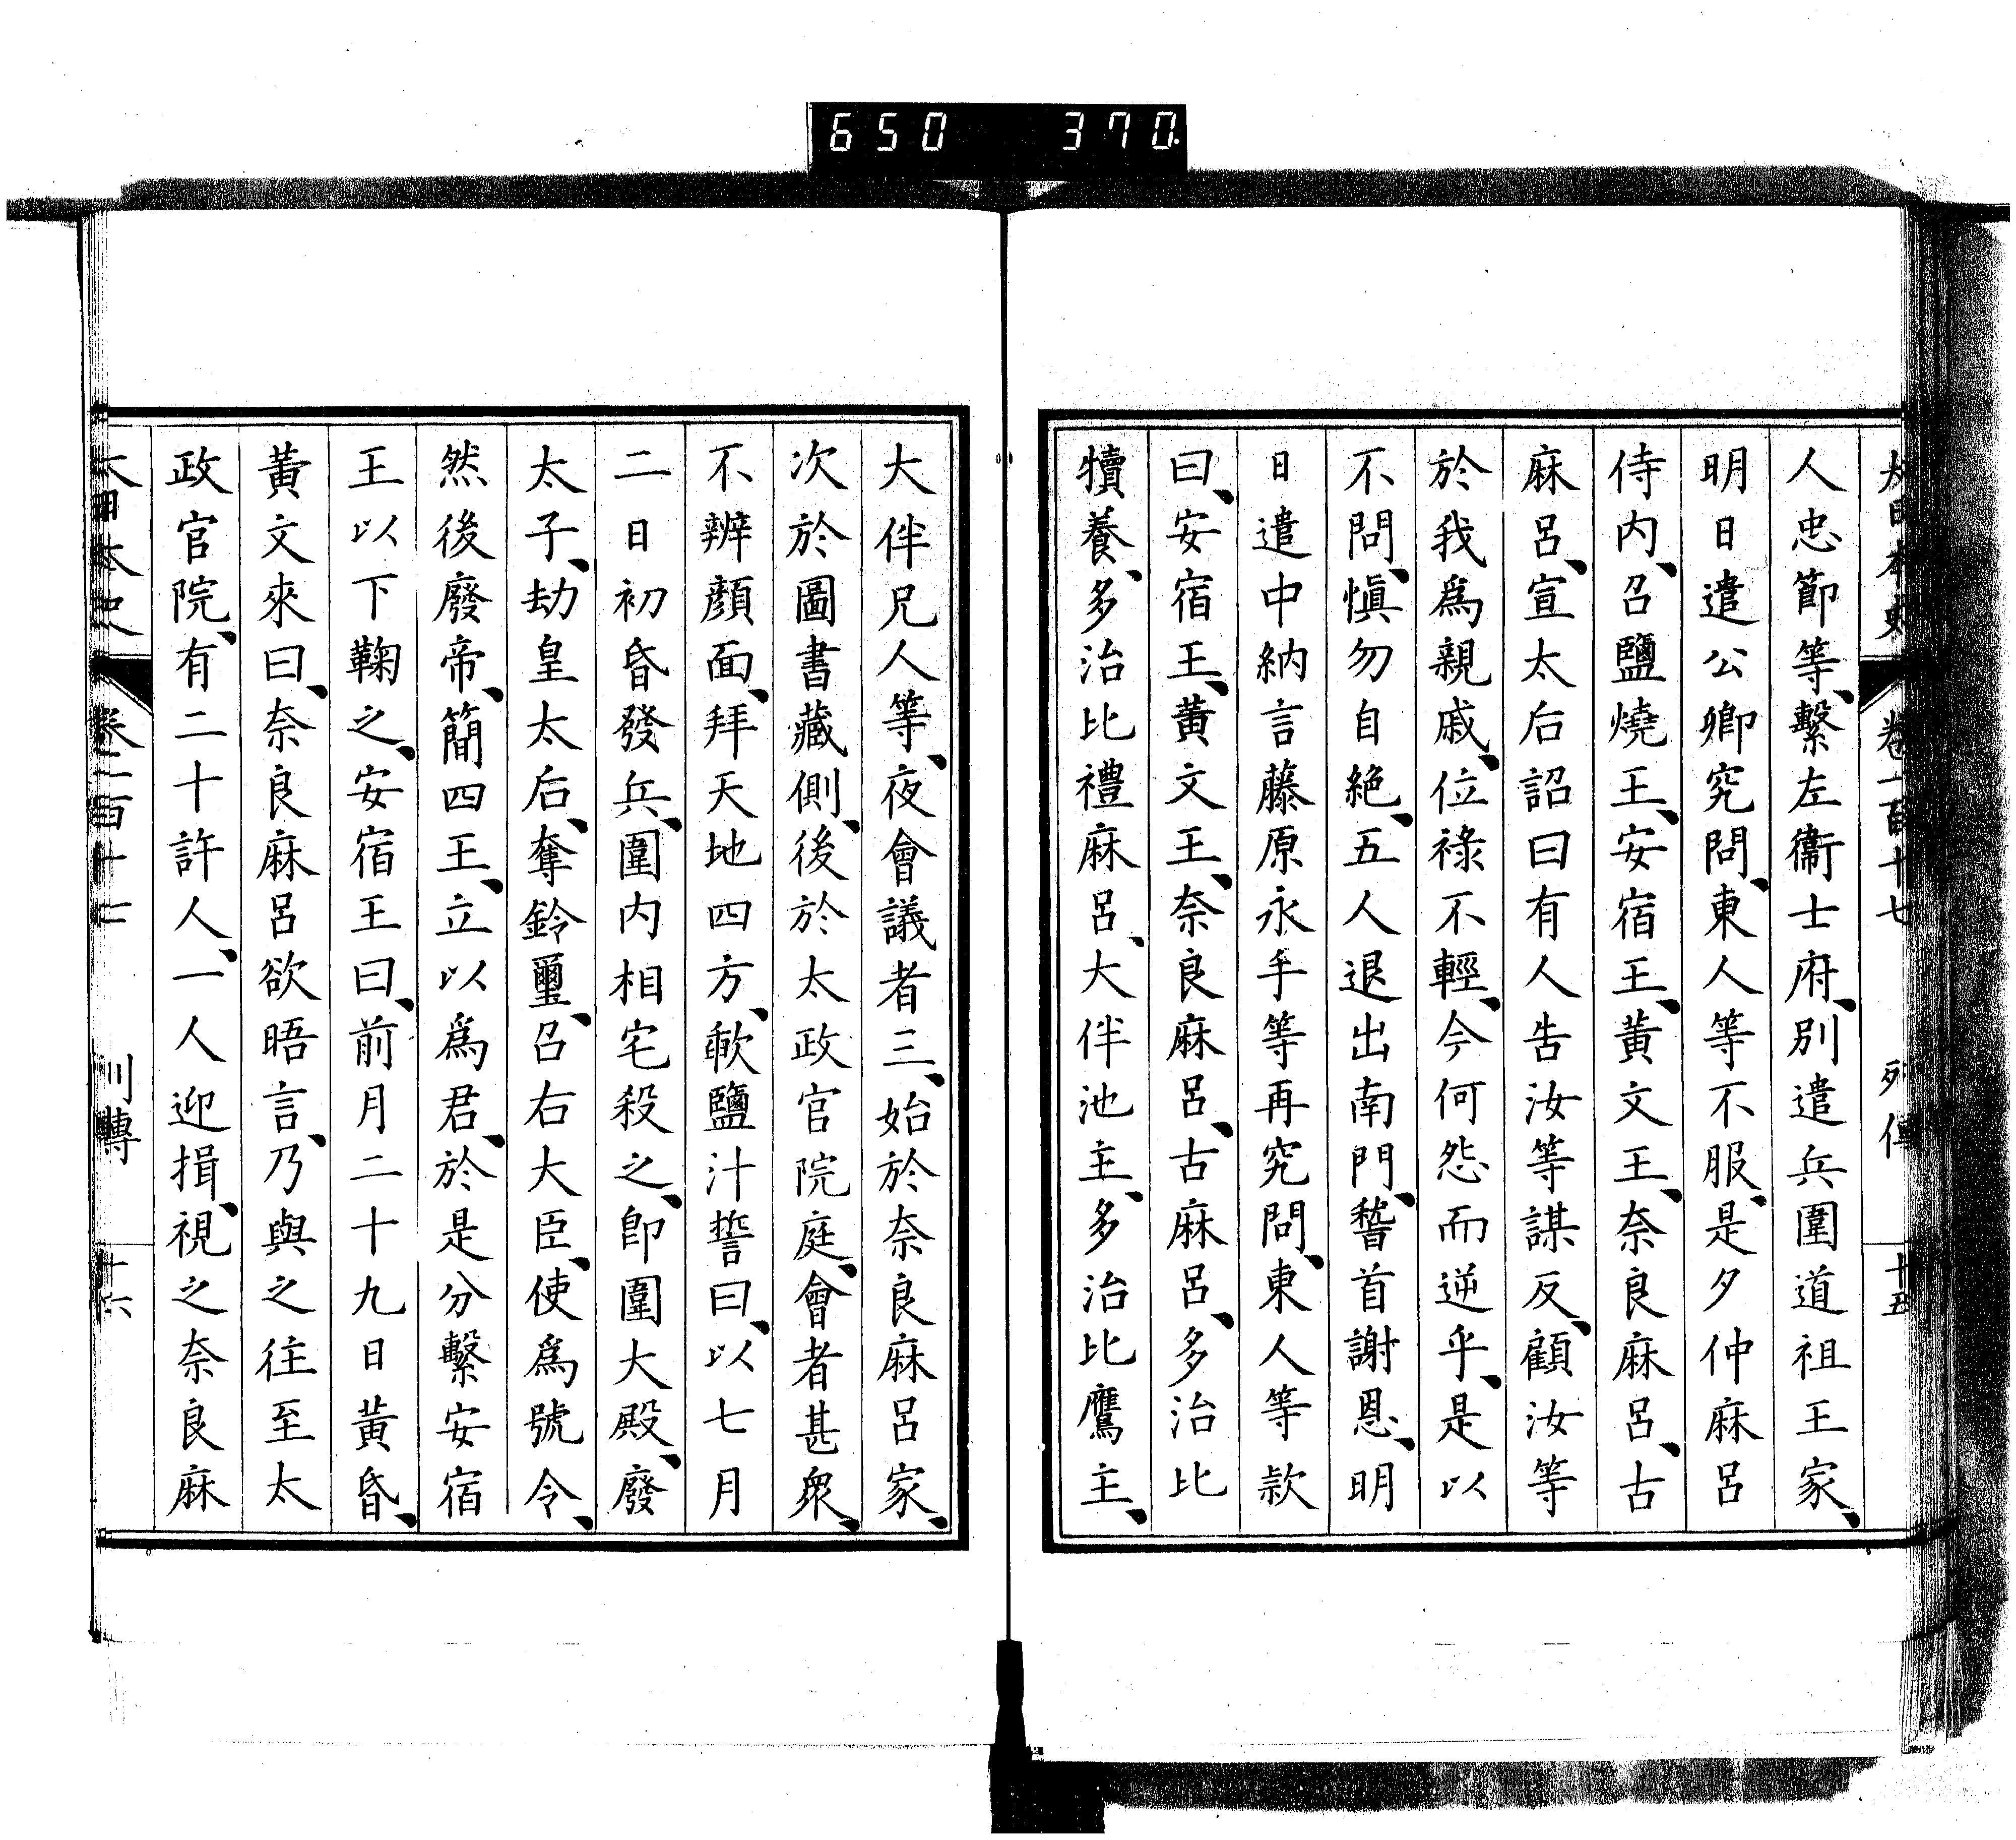 650 370
大日本史 卷一百十七 列傳 十五
人忠節等、繫左衞士府、別遣兵圍道祖王家、
明日遣公卿究問、東人等不服、是夕仲麻呂
侍内、召鹽燒王、安宿王、黃文王、奈良麻呂、古
麻呂、宣太后詔曰有人告汝等謀反、顧汝等
於我爲親戚、位祿不輕、今何怨而逆乎、是以
不問、愼勿自絶、五人退出南門、稽首謝恩、明
日遣中納言藤原永手等再究問、東人等款
曰、安宿王、黃文王、奈良麻呂、古麻呂、多治比
犢養、多治比禮麻呂、大伴池主、多治比鷹主、
大伴兄人等、夜會議者三、始於奈良麻呂家、
次於圖書藏側、後於太政官院庭、會者甚衆、
不辨顏面、拜天地四方、歃鹽汁誓曰、以七月
二日初昏發兵、圍内相宅殺之、卽圍大殿、廢
太子、劫皇太后、奪鈴璽、召右大臣、使爲號令、
然後廢帝、簡四王、立以爲君、於是分繫安宿
王以下鞠之、安宿王曰、前月二十九日黃昏、
黃文來曰、奈良麻呂欲晤言、乃與之往至太
政官院、有二十許人、一人迎揖、視之奈良麻
大日本史 卷一百十七 列傳 十六